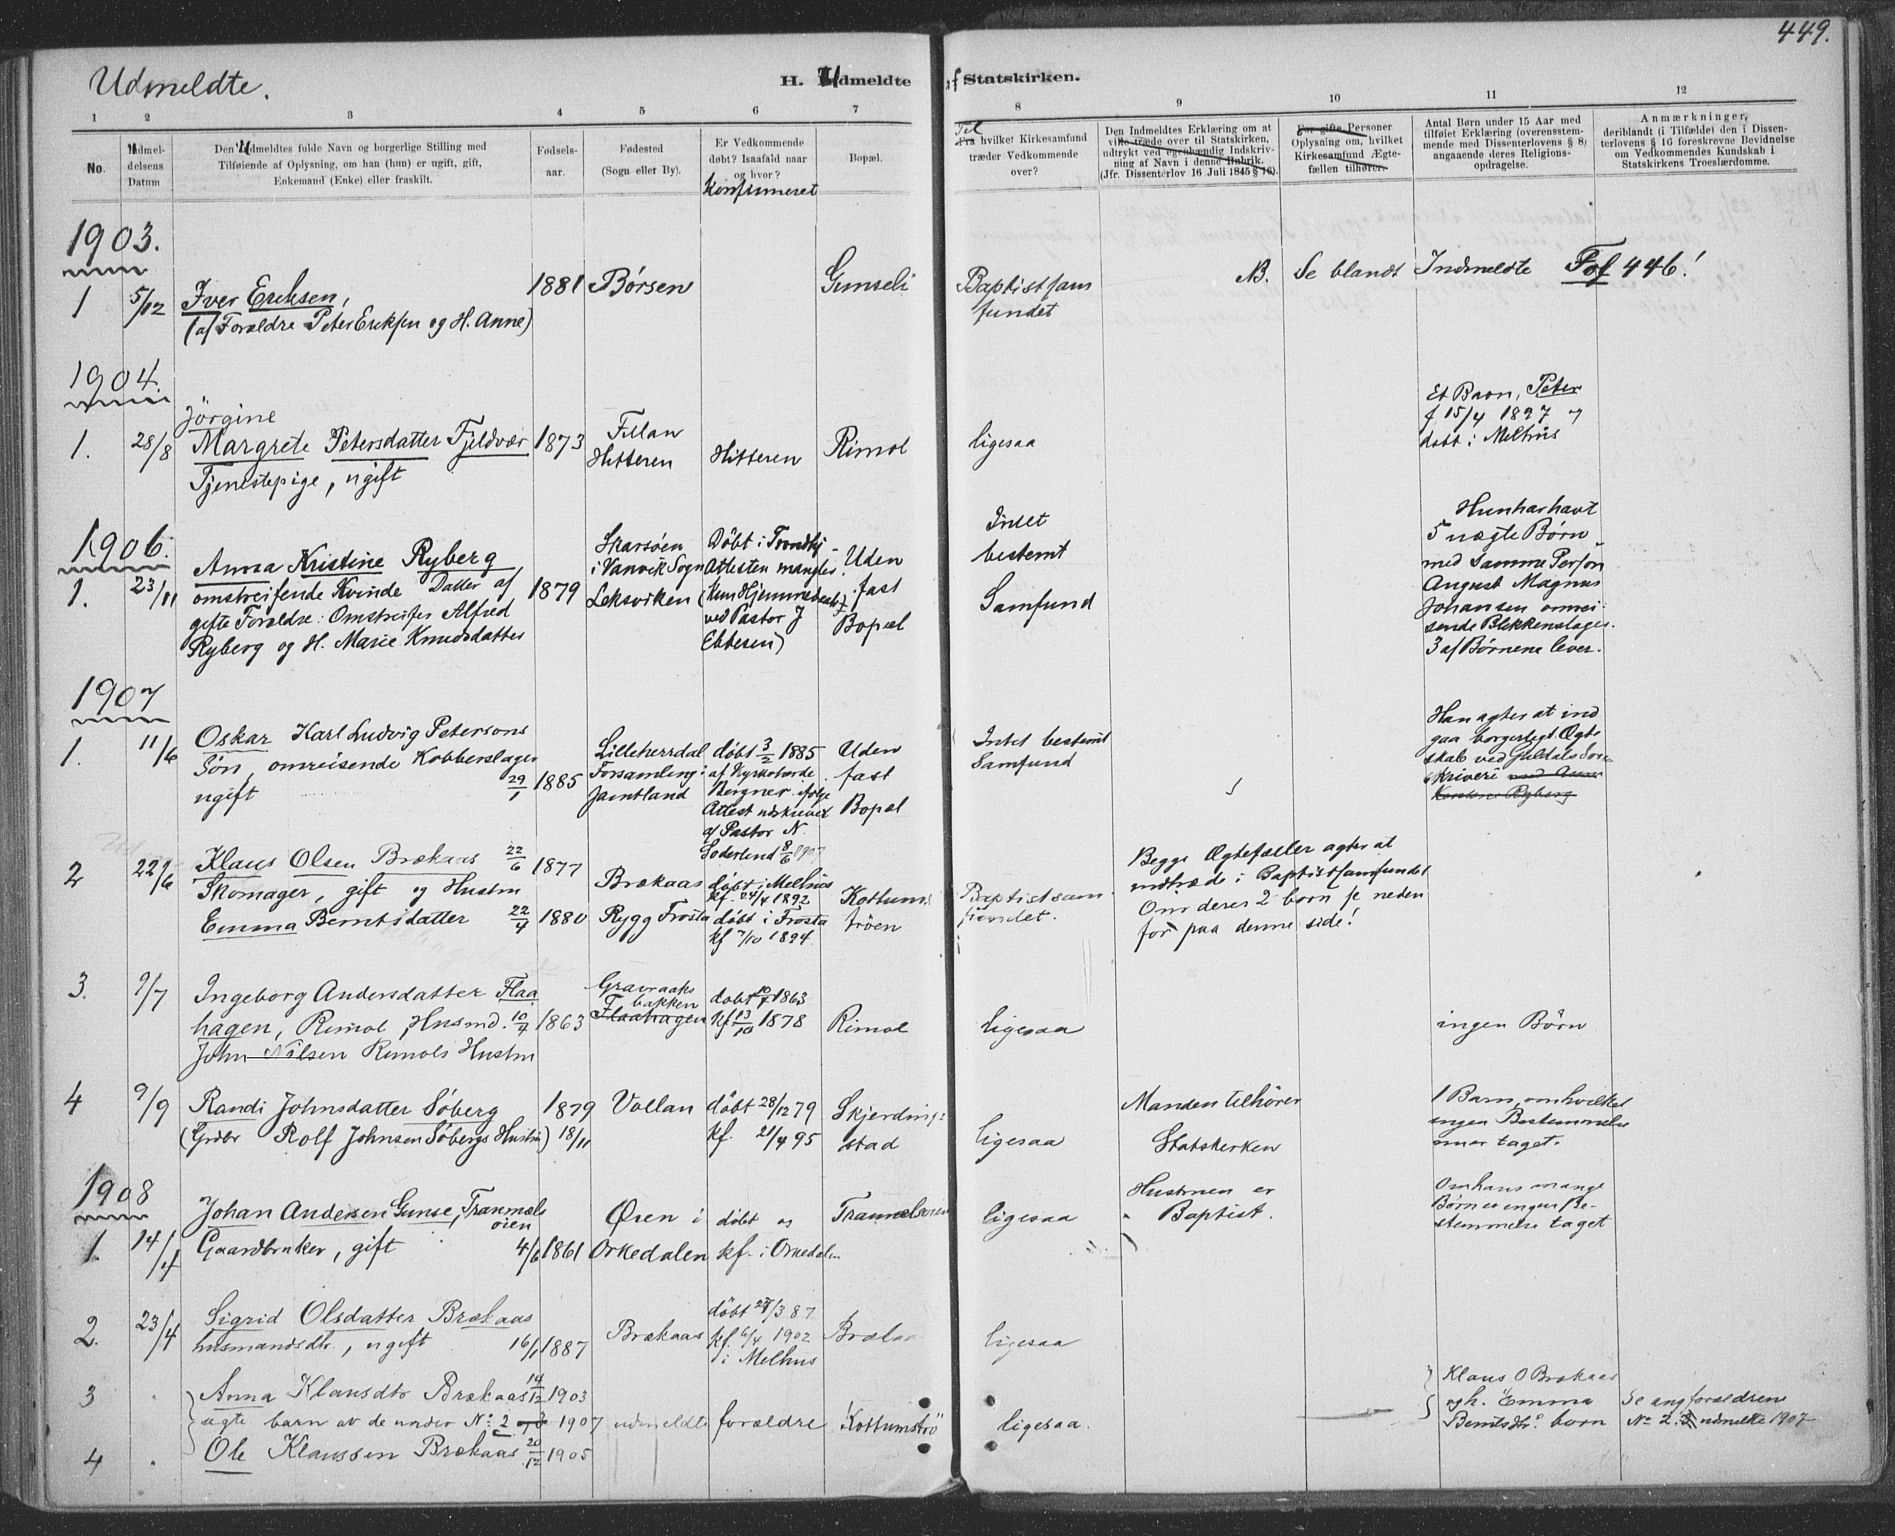 449.
Udmeldte.
H. Udmeldte af Statskirken.
1 2 3 4 5 6 7 8 9 10 11 12
No.
Udmel-
delsens
Datum
Den Udmeldtes fulde Navn og borgerlige Stilling med
Tilføiende af Oplysning, om han (hun) er ugift, gift,
Enkemand (Enke) eller fraskilt.
Fødsels-
aar.
Fødested
(Sogn eller By).
Er Vedkommende
døbt? Isaafald naar
og hvor?
Konfirmeret
Bopæl.
Til
Fra hvilket Kirkesamfund
træder Vedkommende
over?
Den Indmeldtes Erklæring om at
ville træde over til Statskirken,
udtrykt ved egenhændig Indskriv-
ning af Navn i denne Rubrik.
(Jfr. Dissenterlov 16 Juli 1845 § 16).
For gifte Personer
Oplysning om, hvilket
Kirkesamfund Ægte-
fællen tilhører.
Antal Børn under 15 Aar med
tilføiet Erklæring (overensstem-
mende med Dissenterlovens § 8)
angaaende deres Religions-
opdragelse.
Anmærkninger,
deriblandt (i Tilfælde) den i Dissen-
terlovens § 16 foreskrevne Bevidnelse
om Vedkommendes Kundskab i
Statskirkens Troeslærdomme.
1903.
1 5/12 Iver Eriksen,
(af Forældre Peter Eriksen og H. Anne)
1881 Børsen
Baptistsam
fundet
NB. Se blandt Indmeldte Fol 446!
1904.
1. 28/8 Jörgine
Margrete Petersdatter Fjeldvær
Tjenestepige, ugift
1873
Fillan
Hitteren
Hitteren
Rimol
ligesaa
Et Barn, Peter
f 15/4 1897
døbt i Melhus
1906.
1. 23/11 Anna Kristine Ryberg
omstreifende Kvinde Datter af
gifte Forældre: Omstreifer Alfred
Ryberg og H. Marie Knudsdatter
1879
Skarsøen
i Vanvik Sogn
Leksviken
Døbt i Trondhj
Attesten mangler.
(Kun Hjemmedøbt
ved Pastor J
Ebbesen)
Uden
fast
Bopæl
Intet
bestemt
Samfund
Hun har havt
5 uægte Børn
med Samme Person
August Magnus
Johansen omrei-
sende Blikkenslager.
3 af Børnene lever.
1907
1. 11/6 Oskar Karl Ludvig Petersons
Søn, omreisende Kobberslager
ugift 29/1 1885
Lilleherrdal
Forsamling i
Jamtland
døbt 3/2 1885
af Kyrkoherde
Bergner ifølge
Attest udskrevet
af Pastor N.
Soderlund 8/6 1907
Uden
fast
Bopæl
Intet bestemt
Samfund
Han agter at ind
gaa borgerligt Ægte
skab ved Guldals Soren
skriveri med Anna
Kristine Ryberg
2 22/6 Klaus Olsen Brækaas 22/6 1877
Skomager, gift og Hustru
Emma Berntsdatter 22/4 1880
Brækaas
Rygg Frosta
døbt i Melhus
kf. 24/4 1892
døbt i Frosta
kf 7/10 1894
Kottums
trøen
Baptistsam
fundet.
Begge Ægtefæller agter at
indtræde i Baptistsamfundet
Om deres 2 børn se neden
for paa denne side!
3. 9/7 Ingeborg Andersdatter Flaa
hagen, Rimol, Husmd. 10/7 1863
John Nilsen Rimols Hustru
Gravraaks
bakken
Flaahagen
døbt 20/7 1863
kf 13/10 1878
Rimol
ligesaa
ingen Børn
4 9/9 Randi Johnsdatter Søberg 1879
(Grdbr Rolf Johnsen Søbergs Hustru) 18/11
Vollan
døbt 28/12 79
kf. 21/4 95
Skjerding-
stad
ligesaa
Manden tilhører
Statskirken
1 Barn, om hvilket
ingen Bestemmelse
er taget.
1908
1. 14/4 Johan Andersen Gunse, Tranmæls
øien
Gaardbruker, gift 4/6 1861
Øien i
Orkedalen
døbt og
kf. i Orkedalen
Tranmælsøien
ligesaa
Hustruen er
Baptist.
Om hans mange
Børn er ingen Be-
stemmelse taget
2. 23/4 Sigrid Olsdatter Brækaas
husmandsdtr., ugift 16/1 1887
Brækaas
døbt 28/3 87
kf. 6/4 1902
i Melhus
ligesaa
3 Anna Klausdtr Brækaas 14/12 1903
ægte barn av de under No: 2 og 3 1907 udmeldte forældre
Kottumströ
ligesaa.
Klaus O Brækaas
og h. Emma
Berntsdtr. børn
Se ang forældrene
No 2. udmeldte 1907
4 Ole Klaussen Brækaas 20/12 1905